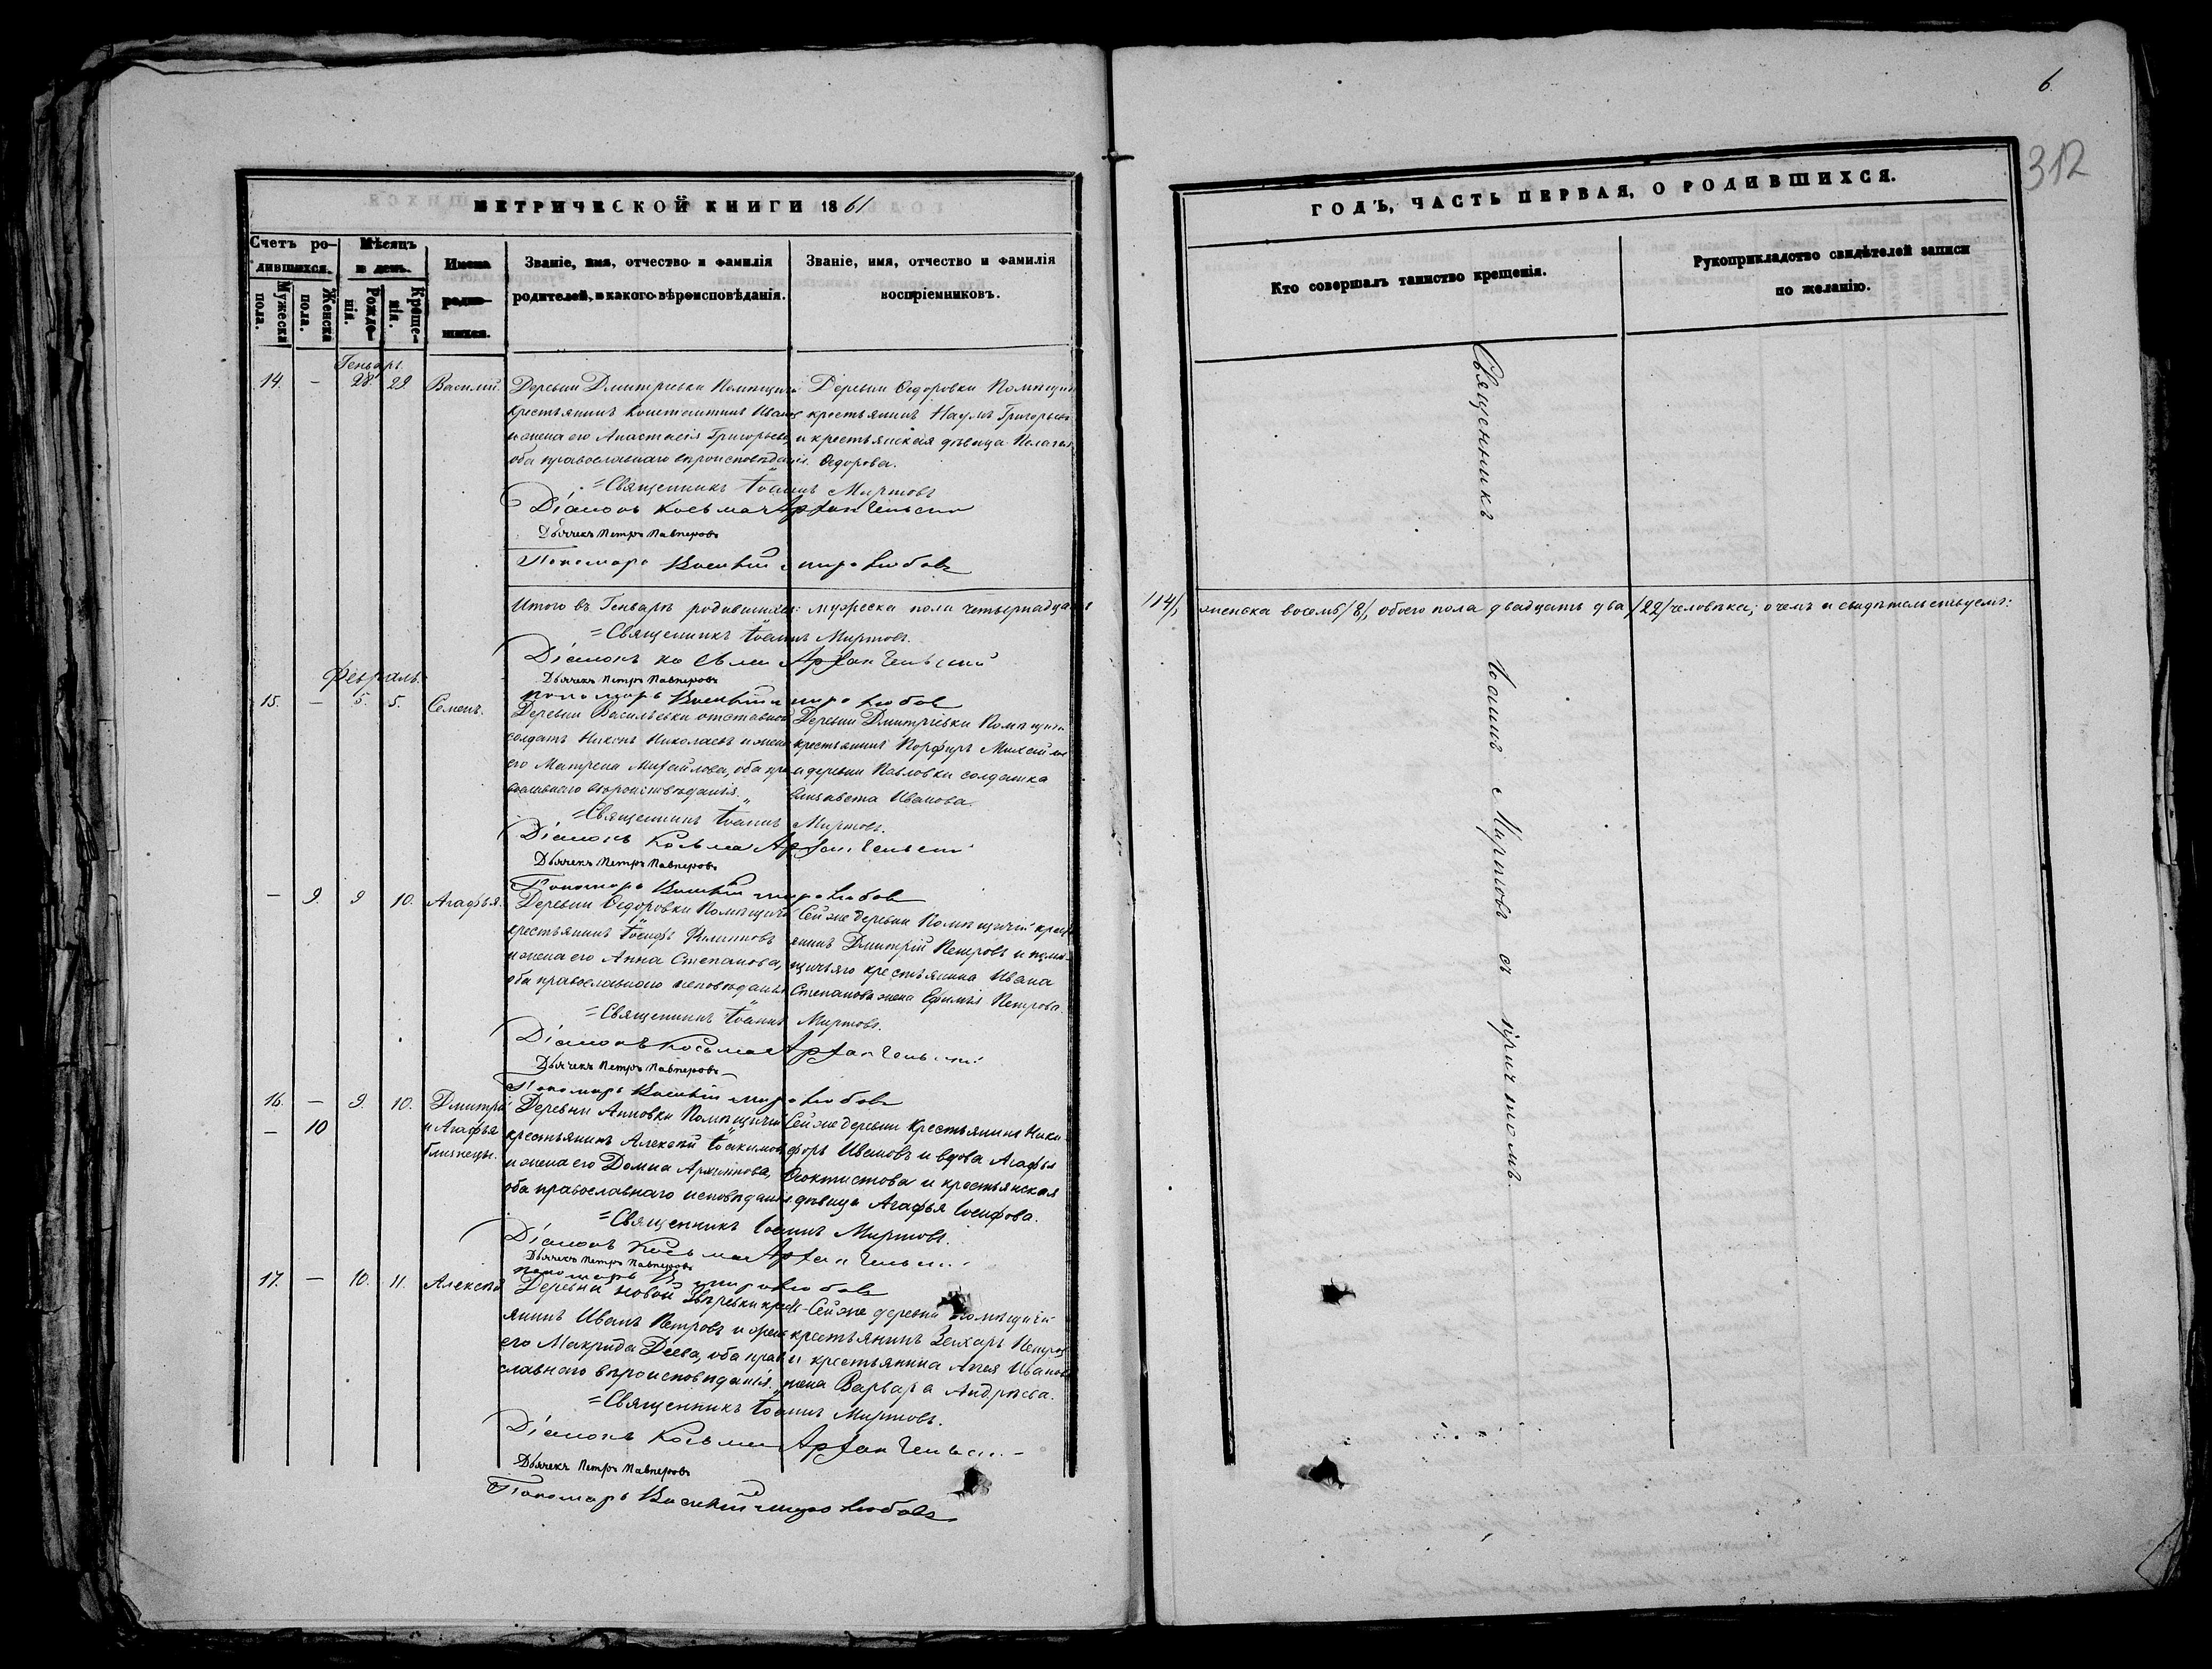 6
312
МЕТРИЧЕСКОЙ КНИГИ 1861
ГОДЪ, ЧАСТЬ ПЕРВАЯ, О РОДИВШИХСЯ.
Счетъ родившихся.
Мужеска пола.
Женска пола.
Мѣсяцъ и день.
Рожденія.
Крещенія.
Имена родившихся.
Званіе, имя, отчество и фамилія
родителей, и какого вѣроисповѣданія.
Званіе, имя, отчество и фамилія
воспріемниковъ.
Кто совершалъ таинство крещенія.
Рукоприкладство свидѣтелей записи
по желанію.
Генварь.
14. — 28 29 Василій.
Деревни Дмитриевки Помѣщичій
крестьянинъ Константинъ Иван
и жена его Анастасія Григорьева
оба православнаго вѣроисповѣданія.
Деревни Ѳедоровки Помѣщич
крестьянинъ Наумъ Григорьев
и крестьянская дѣвица Пелагея
Ѳедорова.
Священникъ Іоаннъ Миртовъ
Діаконъ Косьма Архангельскій
Дьячекъ Петръ Павперовъ
Пономарь Василій Миролюбовъ
Итого въ Генварѣ родившихся: мужеска пола четырнадцать
/14/, женска восемь /8/, обоего пола двадцать два /22/ человѣка; о чемъ и свидѣтельствуемъ:
Священникъ Іоаннъ Миртовъ.
Діаконъ Косьма Архангельскій
Дьячекъ Петръ Павперовъ
Пономарь Василій Миролюбовъ
Февраль.
15. — 5. 5. Семенъ.
Деревни Васильевки отставной
солдатъ Никонъ Николаевъ и жена
его Матрена Михайлова, оба пра
вославнаго вѣроисповѣданія.
Деревни Дмитріевки Помѣщичій
крестьянинъ Порфиръ Михайлов
и деревни Павловки солдатка
Елизавета Иванова.
Священникъ Іоаннъ Миртовъ.
Діаконъ Косьма Архангельскій
Дьячекъ Петръ Павперовъ
Пономарь Василій Миролюбовъ
— 9. 9 10. Агафья.
Деревни Ѳедоровки Помѣщичій
крестьянинъ Іосифъ Филиповъ
и жена его Анна Степанова,
оба православнаго исповѣданія
Сей же деревни Помѣщичій крест
янинъ Дмитрій Петровъ и помѣ-
щичьяго крестьянина Ивана
Степанова жена Ефимія Петрова.
Священникъ Іоаннъ Миртовъ.
Діаконъ Косьма Архангельскій
Дьячекъ Петръ Павперовъ
Пономарь Василій Миролюбовъ
16. — 9. 10. Дмитрій
— 10 и Агафья
близнецы.
Деревни Анновки Помѣщичій
крестьянинъ Алексѣй Іоакимовъ
и жена его Домна
оба православнаго исповѣданія
Сей же деревни Крестьянинъ Ники-
форъ Ивановъ и вдова Агафья
Ѳеоктистова и крестьянская
дѣвица Агафья Іосифова.
Священникъ Іоаннъ Миртовъ.
Діаконъ Косьма Архангельскій
Дьячекъ Петръ Павперовъ
Пономарь В. Миролюбовъ
17. — 10. 11. Алексѣй
Деревни Новой крест-
янинъ Иванъ Петровъ и жена
его Макрида Деева, оба право
славнаго вѣроисповѣданія.
Сей же деревни Помѣщичій
крестьянинъ Захаръ Петров
и крестьянина Иванов
жена Варвара Андреева.
Священникъ Іоаннъ Миртовъ.
Діаконъ Косьма Архангельскій
Дьячекъ Петръ Павперовъ
Пономарь Василій Миролюбовъ
Священникъ Іоаннъ Миртовъ съ причтомъ.